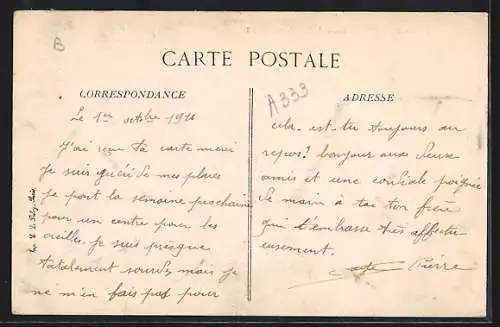 B
CARTE POSTALE
CORRESPONDANCE
Le 1er octobre 191
J'ai reçu ta carte merci
Je suis guéri de mes plaies
Je part la semaine prochaine
pour un centre pour les
oreilles. Je suis presque
totalement sourds, mais je
ne m'en fais pas pour
A333
ADRESSE
cela. est-tu toujours au
repos? bonjour aux deux
amis et une cordiale poignée
de main à toi ton frère
qui t'embrasse très affectu
eusement.
Pierre